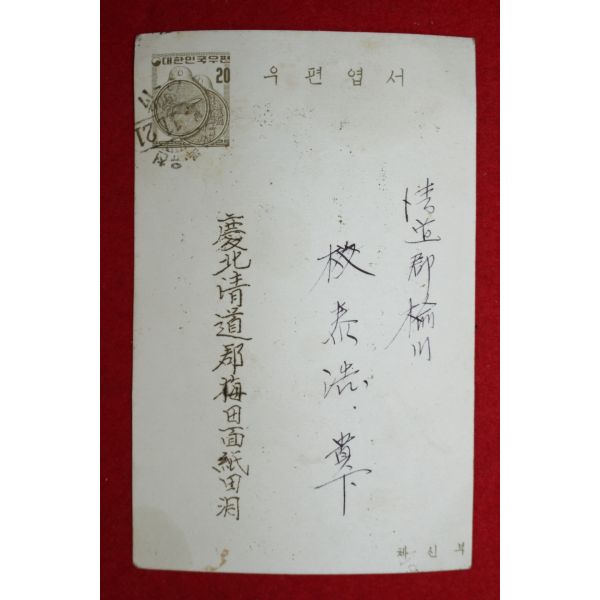 대한민국우편
20
우편엽서
21
淸道郡楡川
泰浩 貴下
慶北淸道郡梅田面紙田洞
체신부